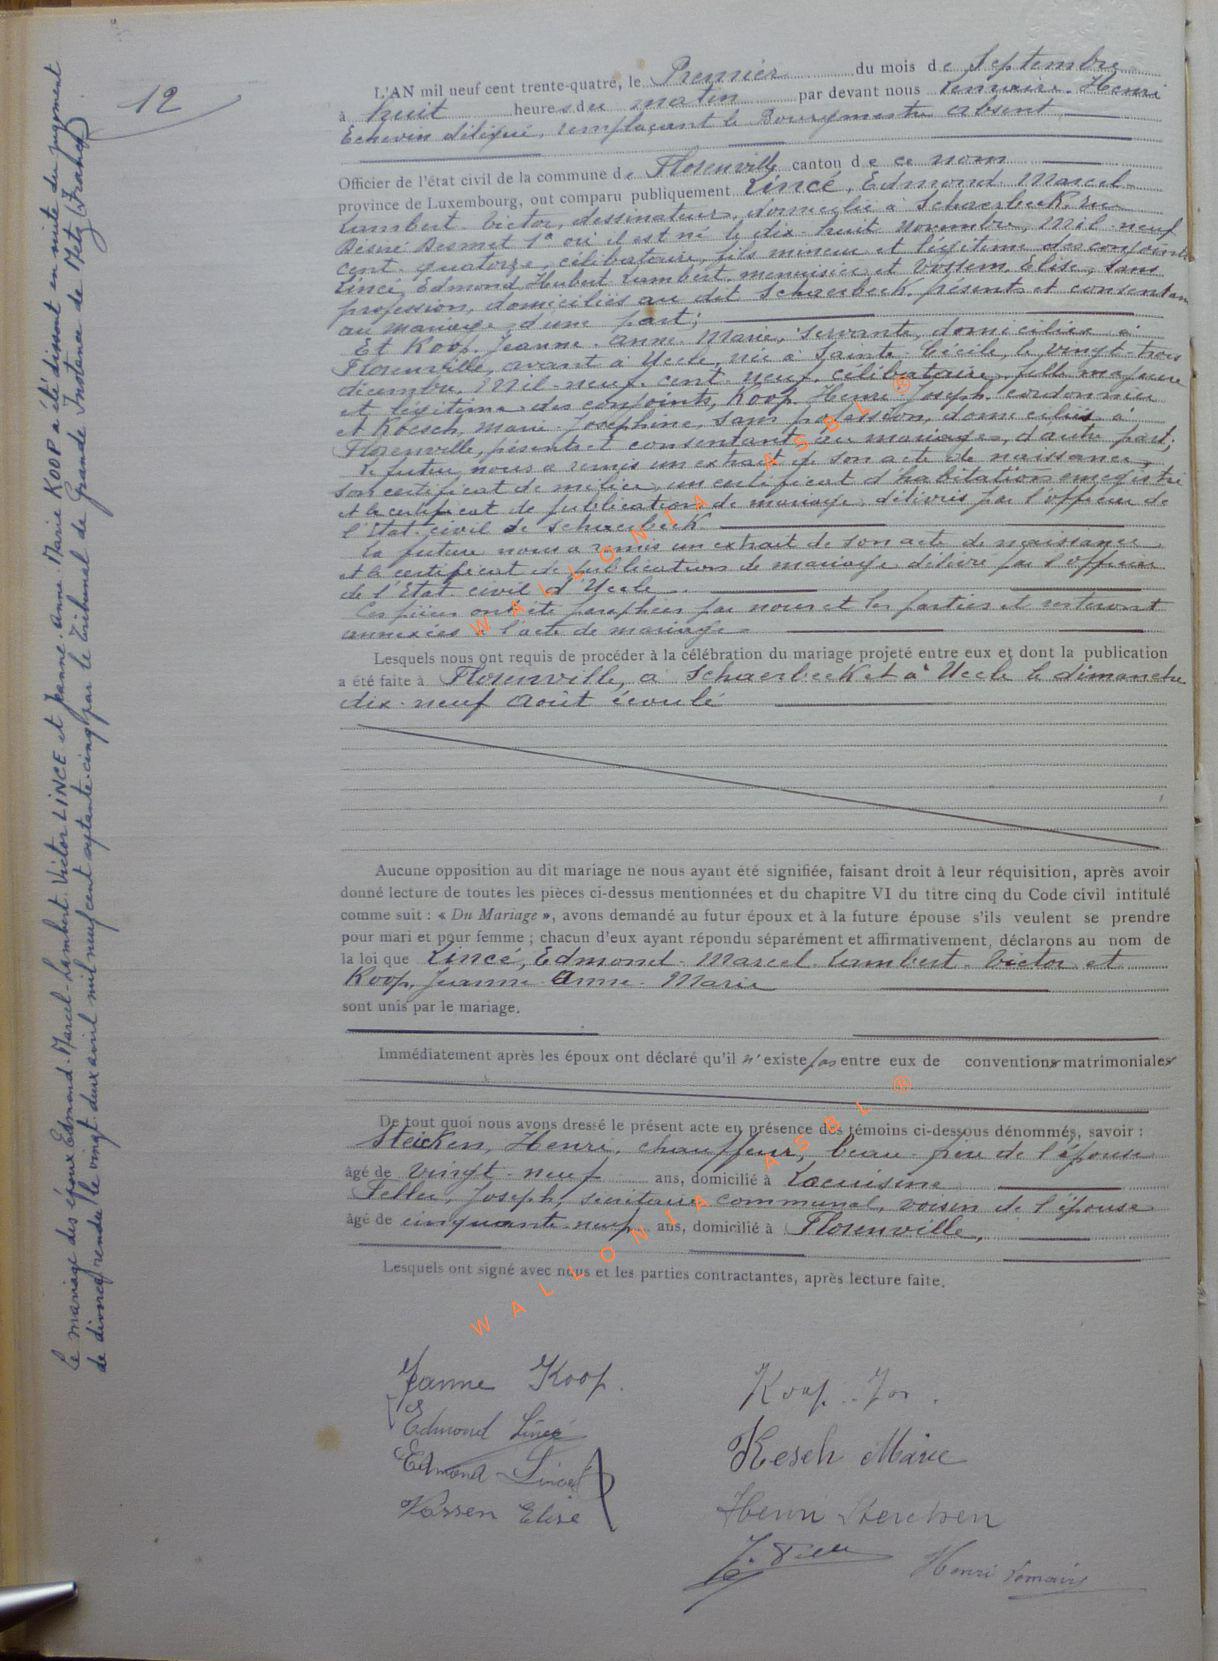 12
L'AN mil neuf cent trente-quatre, le Premier du mois de Septembre
à huit heures du matin par devant nous Lemaire Henri
Echevin délégué, remplaçant le Bourgmestre absent
Officier de l'état civil de la commune de Florenville canton de ce nom
province de Luxembourg, ont comparu publiquement Lincé, Edmond Marcel
Lambert Victor, dessinateur, domicilié à Schaerbeek rue
Désiré Desmet 1a où il est né le dix-huit novembre, Mil-neuf
cent-quatorze, célibataire, fils mineur et légitime des conjoints
Lincé, Edmond Hubert Lambert, menuisier et Vossem Elise, sans
profession, domiciliés au dit Schaerbeek, présents et consentant
au mariage, d'une part;
Et Koop, Jeanne-Anne-Marie, servante, domiciliée à
Florenville, avant à Uccle, née à Sainte-Cécile, le vingt-trois
décembre, Mil-neuf-cent-neuf, célibataire, fille majeure
et légitime des conjoints, Koop, Henri-Joseph, cordonnier
et Koesch, Marie-Josephine, sans profession, domiciliés à
Florenville, présents et consentants au mariage, d'autre part;
Le futur nous a remis un extrait de son acte de naissance,
son certificat de milice, un certificat d'habitation enregistré
et le certificat de publication de mariage délivrés par l'officier de
l'Etat-civil de Schaerbeek
La future nous a remis un extrait de son acte de naissance
et le certificat de publication de mariage délivré par l'officier
de l'Etat-civil d'Uccle.
Ces pièces ont été paraphées par nous et les parties et resteront
annexées à l'acte de mariage
Lesquels nous ont requis de procéder à la célébration du mariage projeté entre eux et dont la publication
a été faite à Florenville, à Schaerbeek et à Uccle le dimanche
dix-neuf Août écoulé
Aucune opposition au dit mariage ne nous ayant été signifiée, faisant droit à leur réquisition, après avoir
donné lecture de toutes les pièces ci-dessus mentionnées et du chapitre VI du titre cinq du Code civil intitulé
comme suit : « Du Mariage », avons demandé au futur époux et à la future épouse s'ils veulent se prendre
pour mari et pour femme ; chacun d'eux ayant répondu séparément et affirmativement, déclarons au nom de
la loi que Lincé, Edmond-Marcel-Lambert-Victor et
Koop, Jeanne-Anne-Marie
sont unis par le mariage.
Immédiatement après les époux ont déclaré qu'il n'existe pas entre eux de conventions matrimoniales
De tout quoi nous avons dressé le présent acte en présence des témoins ci-dessous dénommés, savoir :
Steicken, Henri, chauffeur, beau-frère de l'épouse
âgé de vingt-neuf ans, domicilié à Lacuisine
Feller, Joseph, secrétaire communal, voisin de l'épouse
âgé de cinquante-neuf ans, domicilié à Florenville,
Lesquels ont signé avec nous et les parties contractantes, après lecture faite.
Jeanne Koop.
Koop. Jos.
Edmond Lincé
Edmond Lincé
Kesch Marie
Vossen Elise
Henri Steicken
Henri Lemaire
Le mariage des époux Edmond-Marcel-Lambert-Victor LINCE et Jeanne-Anne-Marie KOOP a été dissout en suite du jugement
de divorce rendu le vingt-deux avril mil neuf cent septante-cinq par le Tribunal de Grande Instance de Metz (France)
WALLONIA ASBL ®
WALLONIA ASBL ®